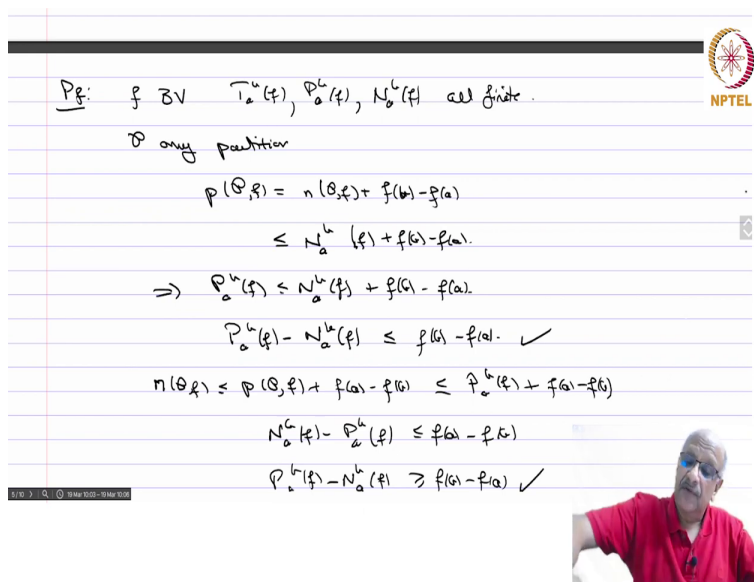 Pf: f BV T_a^b(f), P_a^b(f), N_a^b(f) all finite.
NPTEL
℘ any partition
p(℘,f) = n(℘,f) + f(b) - f(a)
≤ N_a^b(f) + f(b) - f(a).
⇒ P_a^b(f) ≤ N_a^b(f) + f(b) - f(a).
P_a^b(f) - N_a^b(f) ≤ f(b) - f(a). ✓
n(℘,f) ≤ p(℘,f) + f(a) - f(b) ≤ P_a^b(f) + f(a) - f(b)
N_a^b(f) - P_a^b(f) ≤ f(a) - f(b)
P_a^b(f) - N_a^b(f) ≥ f(b) - f(a) ✓
5/10 19 Mar 10:03 - 19 Mar 10:06